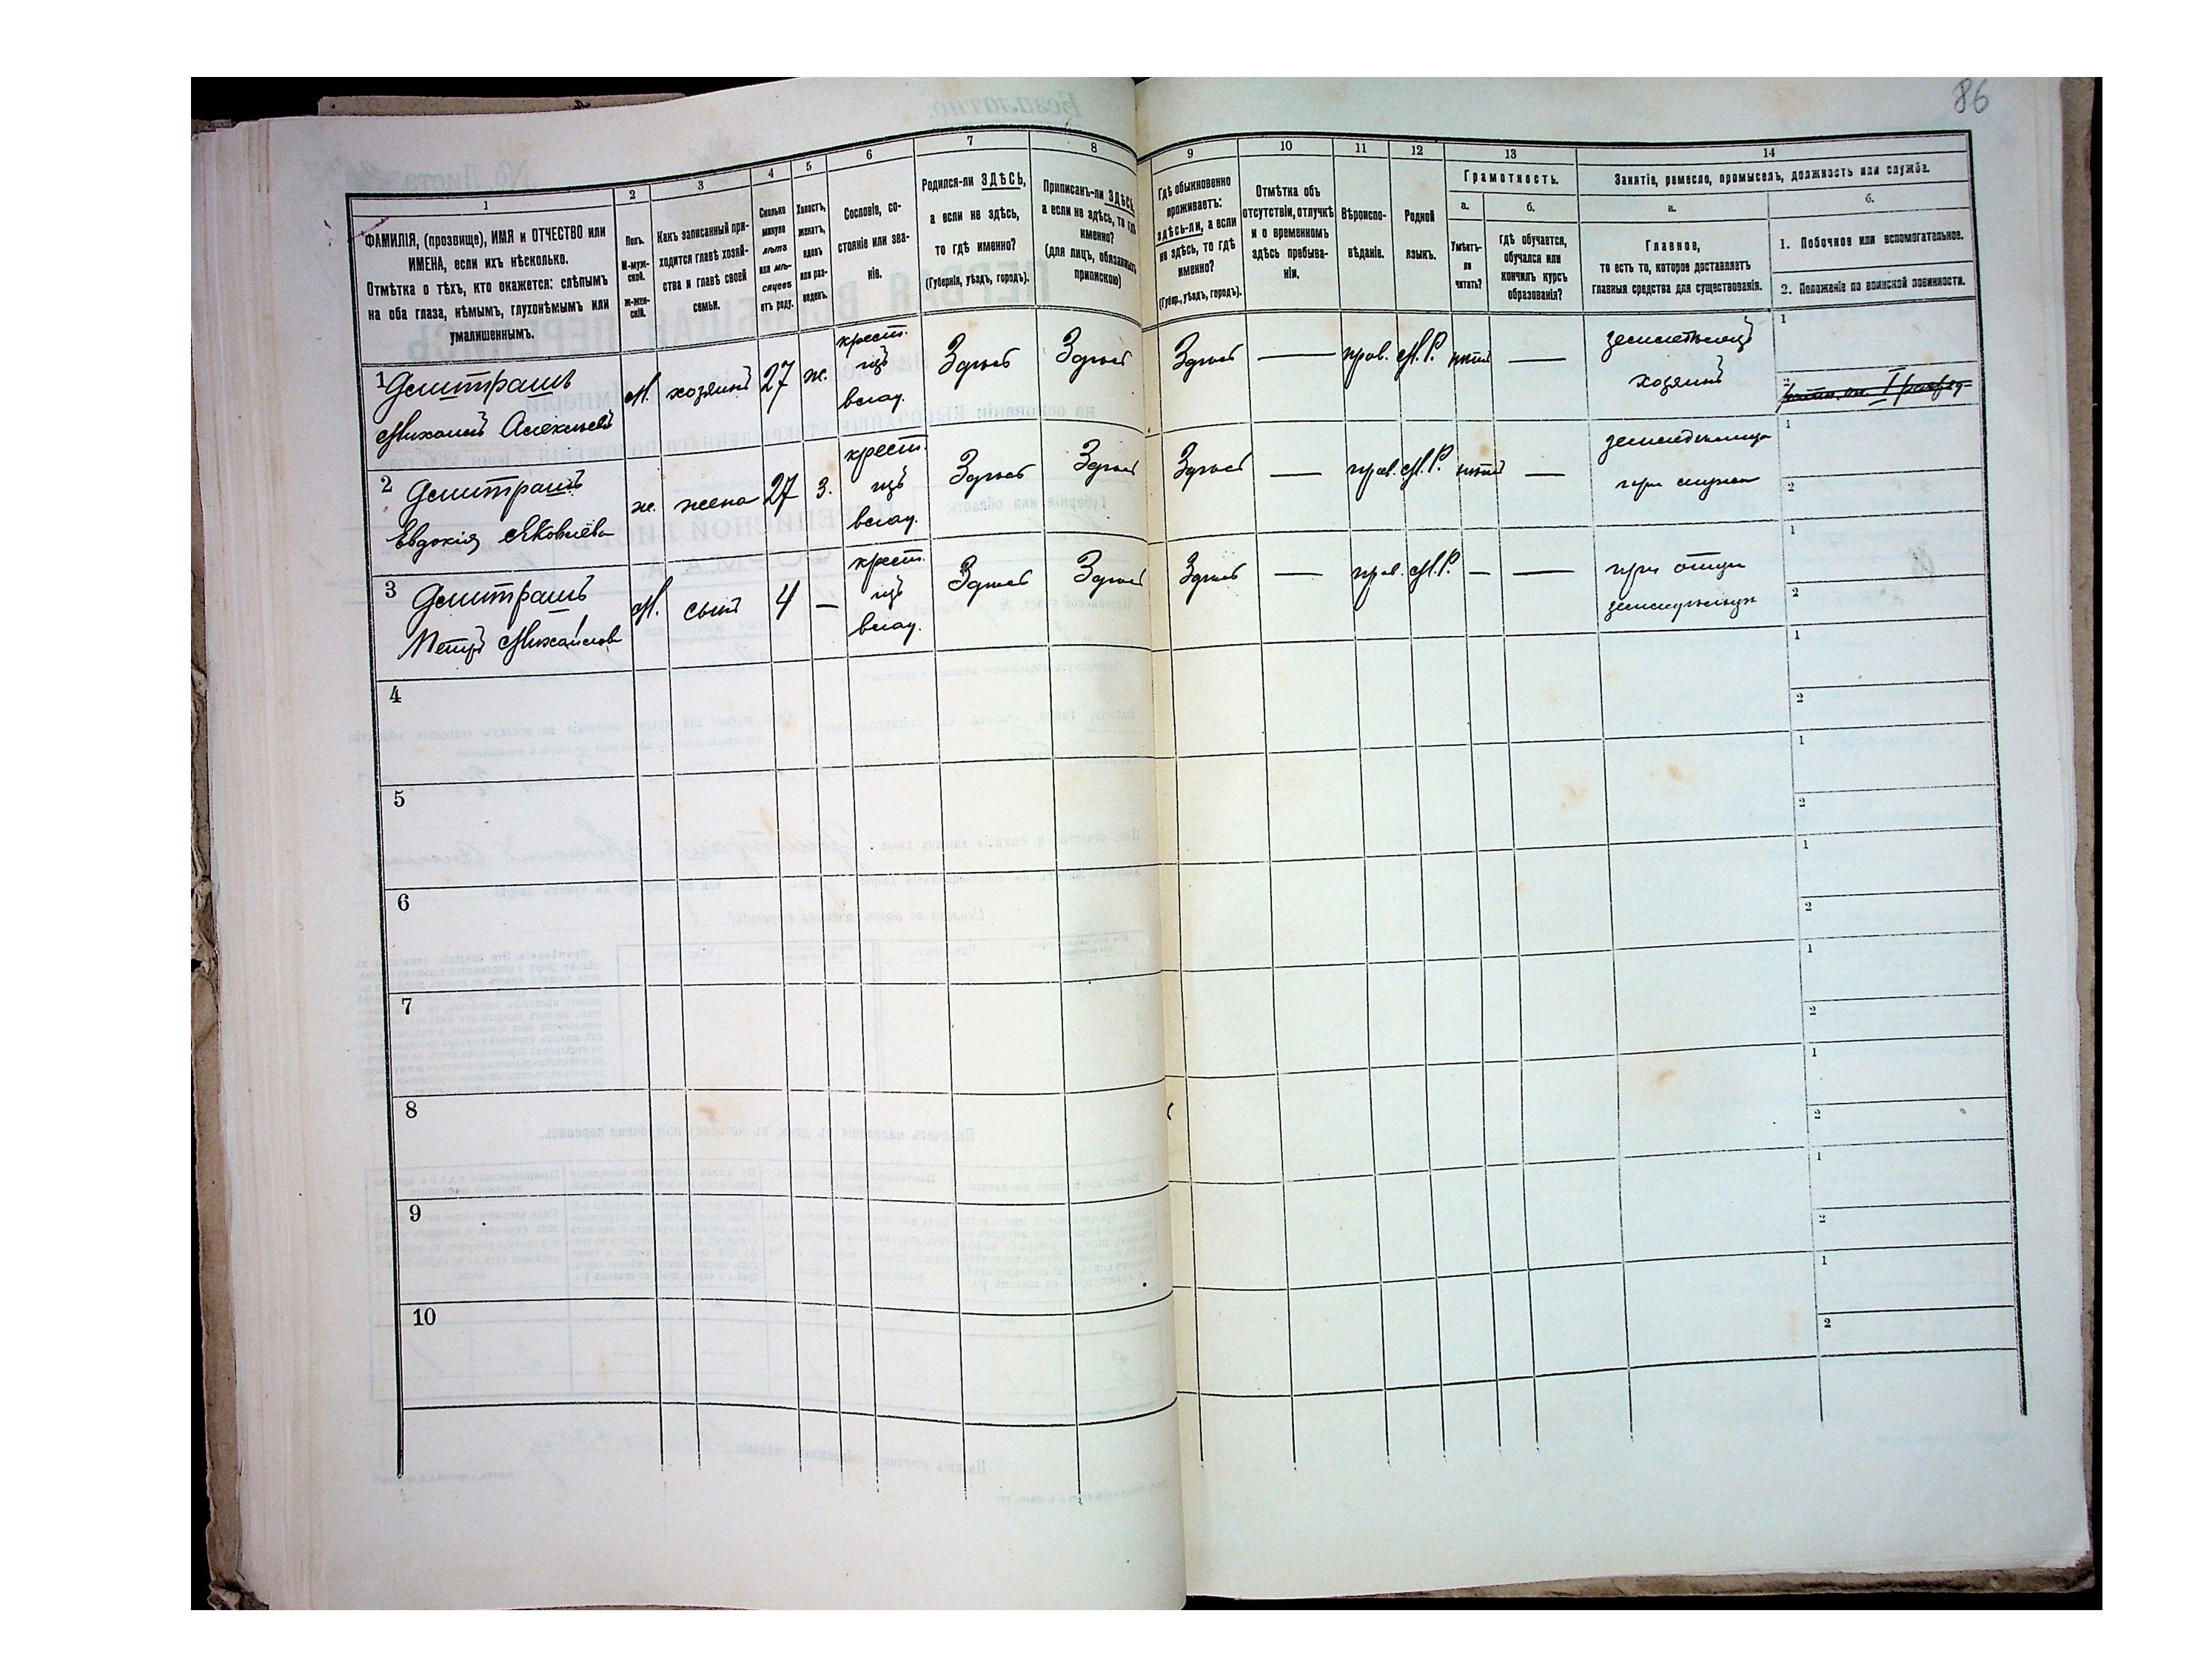 86
1
2
3
4
5
6
7
8
9
10
11
12
13
14
ФАМИЛІЯ, (прозвище), ИМЯ и ОТЧЕСТВО или
ИМЕНА, если ихъ нѣсколько.
Отмѣтка о тѣхъ, кто окажется: слѣпымъ
на оба глаза, нѣмымъ, глухонѣмымъ или
умалишеннымъ.
Полъ.
М-муж-
ской.
Ж-жен-
скій.
Какъ записанный при-
ходится главѣ хозяй-
ства и главѣ своей
семьи.
Сколько
минуло
лѣтъ
или мѣ-
сяцевъ
отъ роду.
Холостъ,
женатъ,
вдовъ
или раз-
веденъ.
Сословіе, со-
стояніе или зва-
ніе.
Родился-ли ЗДѢСЬ,
а если не здѣсь,
то гдѣ именно?
(Губернія, уѣздъ, городъ).
Приписанъ-ли ЗДѢСЬ,
а если не здѣсь, то гдѣ
именно?
(для лицъ, обязанныхъ
припискою)
Гдѣ обыкновенно
проживаетъ:
здѣсь-ли, а если
не здѣсь, то гдѣ
именно?
(Губер., уѣздъ, городъ).
Отмѣтка объ
отсутствіи, отлучкѣ
и о временномъ
здѣсь пребыва-
ніи.
Вѣроиспо-
вѣданіе.
Родной
языкъ.
Грамотность.
а.
Умѣетъ-
ли
читать?
б.
гдѣ обучается,
обучался или
кончилъ курсъ
образованія?
Занятіе, ремесло, промыселъ, должность или служба.
а.
Главное,
то есть то, которое доставляетъ
главныя средства для существованія.
б.
1. Побочное или вспомогательное.
2. Положеніе по воинской повинности.
1 Демитрашъ
Михаилъ Алексѣевъ
М. хозяинъ 27 ж. крест. изъ владѣл. Здѣсь Здѣсь Здѣсь — прав. М.Р. нѣтъ — земледѣлецъ
хозяинъ
1
2
2 Демитрашъ
Евдокія Яковлева
ж. жена 27 з. крест. изъ Здѣсь Здѣсь Здѣсь — прав. М.Р. нѣтъ —
при мужѣ
1
2
3 Демитрашъ
Петръ Михайловъ
М. сынъ 4 — крест. изъ Здѣсь Здѣсь Здѣсь — прав. М.Р. — — при отцѣ
1
2
4
1
2
5
1
2
6
1
2
7
1
2
8
1
2
9
1
2
10
1
2